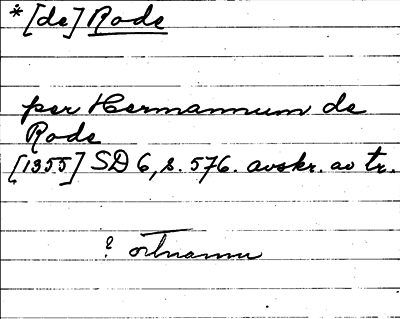 * [de] Rode
per Hermannum de
Rode
[1355] SD 6, s. 576. avskr. av tr.
? ortnamn